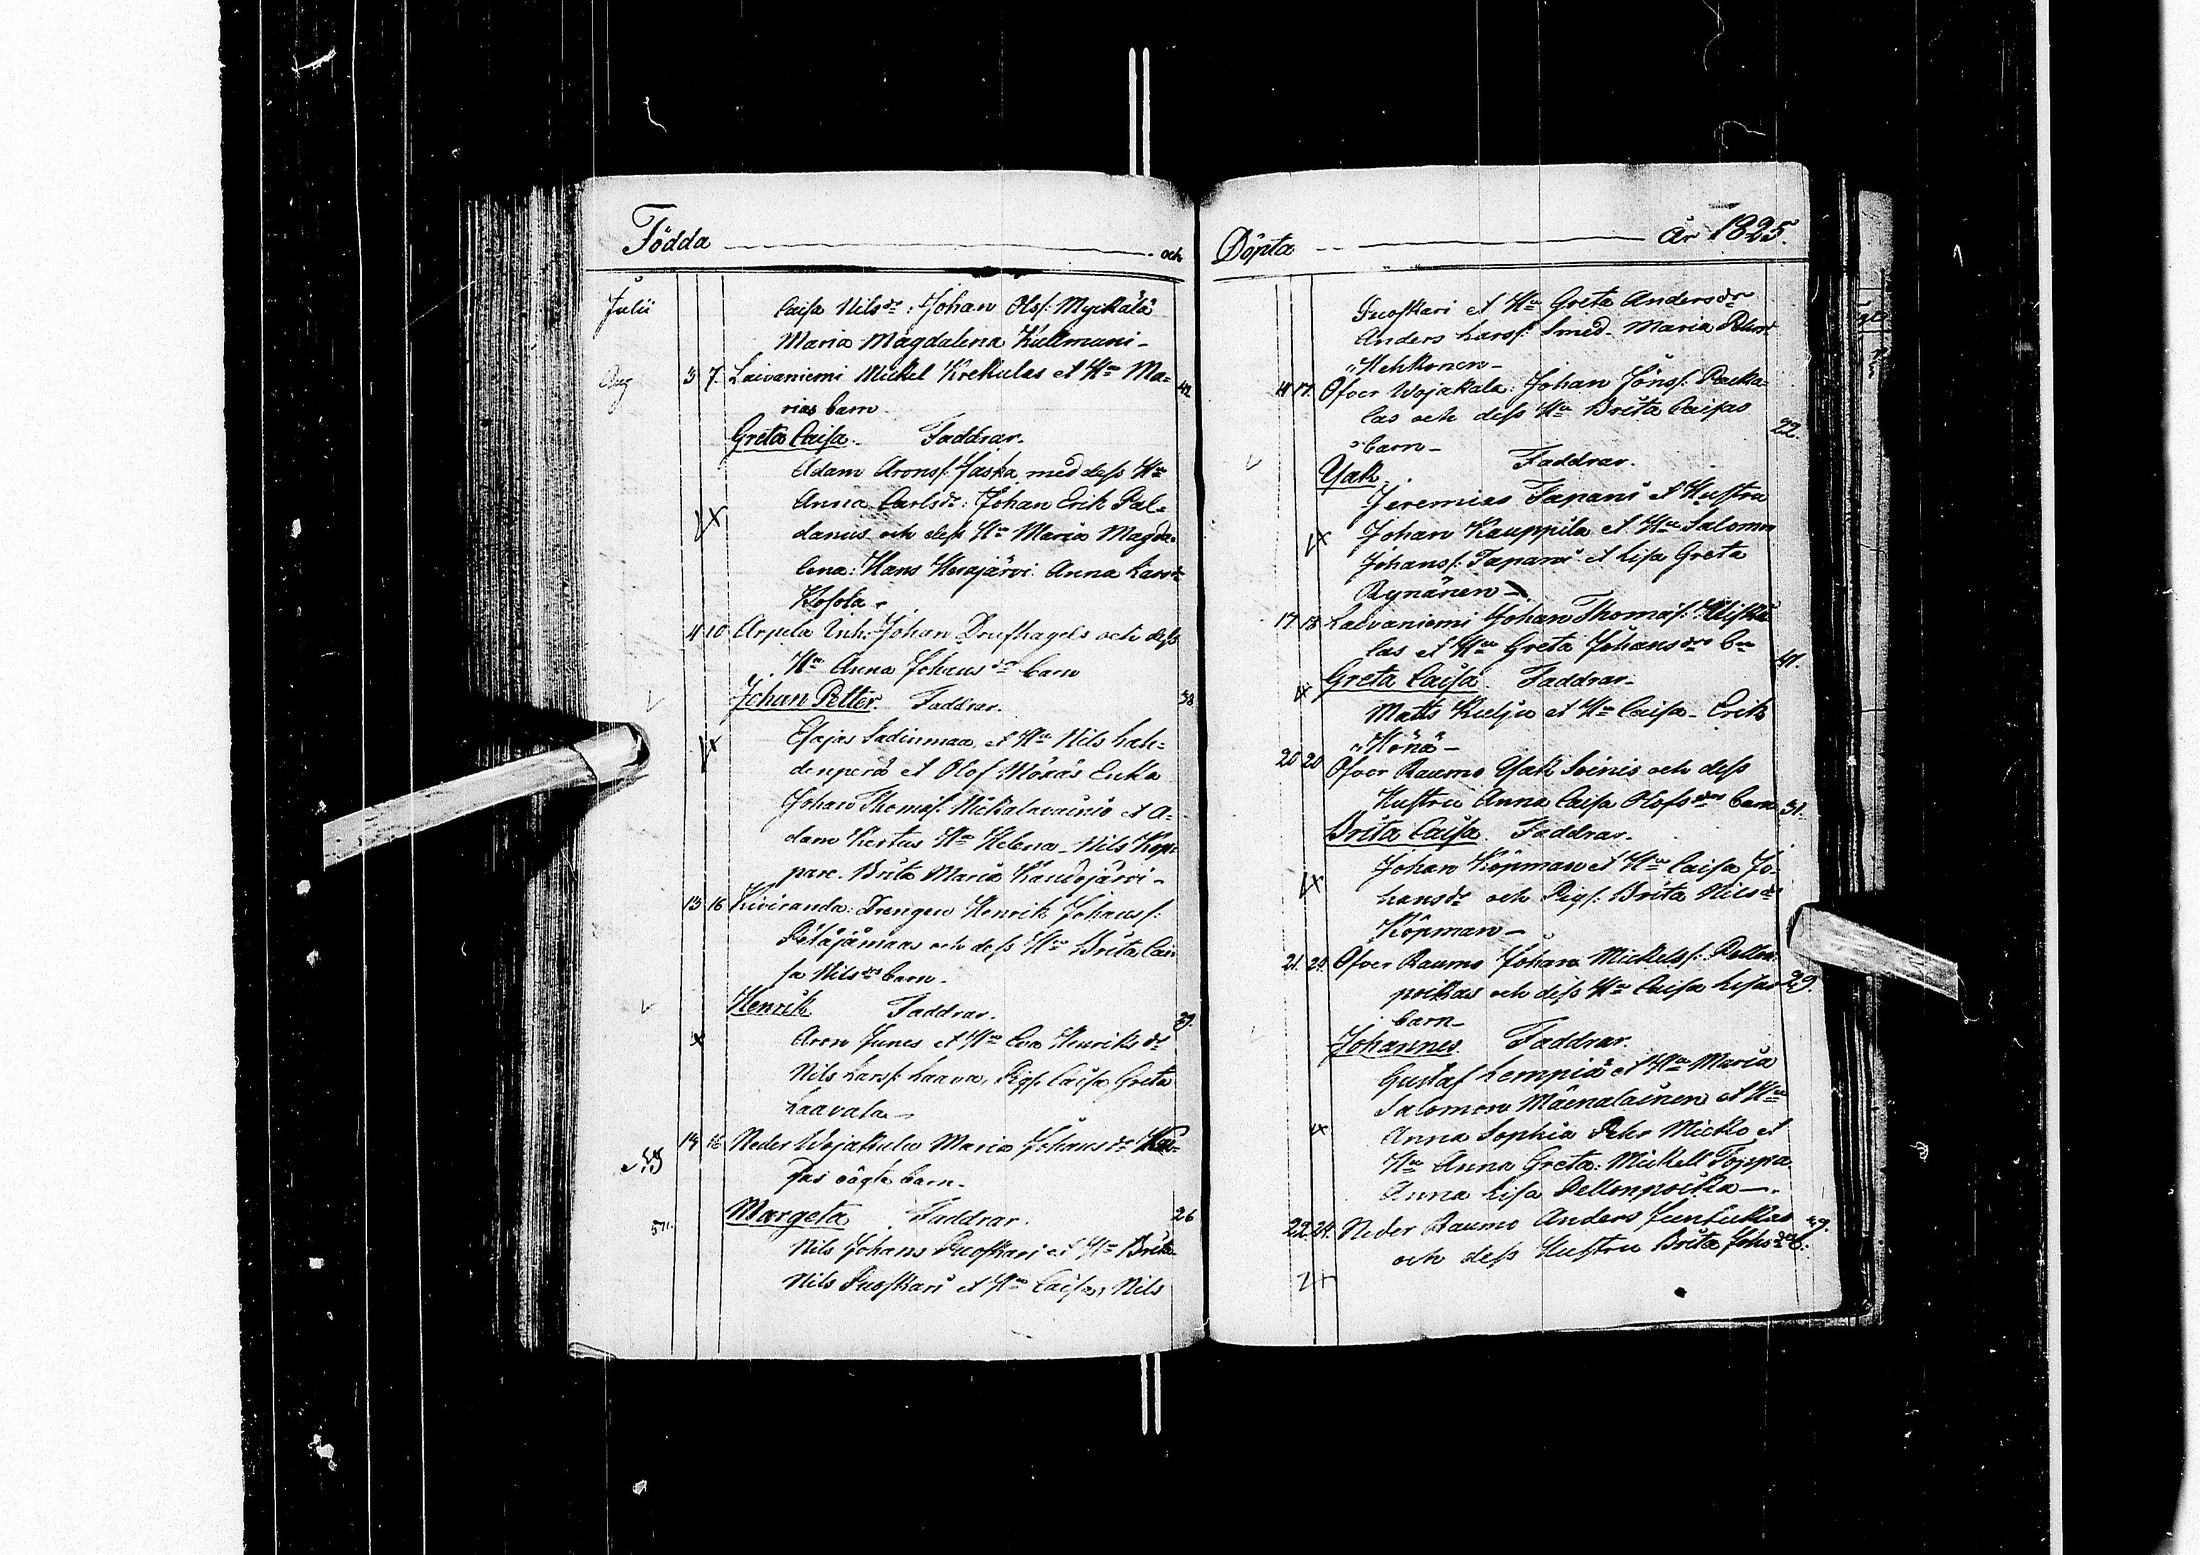 Födda och
Julii
Caisa Nilsdr: Johan Olss: Myckälä
Maria Magdalena Kullmuni-
Aug 3 7. Laivaniemi Mickel Krekulas et Hu Ma-
rias barn.
Greta Caisa. Faddrar.
Adam Aronss: Jaska med dess Hu
Anna Carlsdr: Johan Erik Pal-
danius och dess Hu Maria Magda-
lena: Hans Herajärvi Anna Larsdr
Kosola.
4 10 Arpela Inh: Johan Drufhagels och dess
Hu Anna Johansdr barn
Johan Petter. Faddrar. 38
Esajas et Hu Nils Lah-
denperä et Olof Enka
Johan Thomass: et A-
dam Kertus Hu Helena - Nils Kop-
pare. Brita Maria Kaudojärvi-
13 16 Kiviranda: Drengen Henrik Johanss:
Pätäjämaas och dess Hu Brita Cai-
sa Nilsdrs barn.
Henrik Faddrar.
Aron Junes et Hu Eva Henriksdr
Nils Larss: Laava, Pigs. Caisa Greta
Laavala-
14 16 Neder Wojakala Maria Johansdr
oägta barn-
Margeta Faddrar. 26
Nils Johans Puoskari et Hu Brita
Nils Puoskari et Hu Caisa, Nils
Döpta år 1825.
Puoskari et Hu Greta Andersdr
Anders Larss: Smed- Maria
Hehkonen-
14 17. Öfver Wojakala. Johan Jönss: Packa-
las och dess Hu Brita Caisas
barn- 22.
Isak. Faddrar.
Jeremias Tapani et Hustru
Johan Kauppila et Hu Salomon
Johanss: Tapani et Lisa Greta
Rynänen-
17 18 Laivaniemi Johan Thomass:
las et Hu Greta Johansdrs bn 41.
Greta Caisa. Faddrar-
Matts Kulju et Hu Caisa- Erik
Hönä-
20 20 Öfver Raumo Isak Soinis och dess
Hustru Anna Caisa Olofsdrs barn 31.
Brita Caisa. Faddrar.
Johan Köpman et Hu Caisa Jo-
hansdr och Pigs: Brita Nilsdr
Köpman-
21. 24. Öfver Raumo Johan Mickelss: Pellon-
poikas och dess Hu Caisa Lisas 29.
barn-
Johannes Faddrar.
Gustaf Lempiä et Hu Maria
Salomon Mäenalainen et Hu
Anna Sophia Pehr Micko et
Hu Anna Greta: Mickell Toppa
Anna Lisa Pellonpoika-
22. 24. Neder Raumo Anders Juntukas
och dess Hustru Brita Johsdrs b: